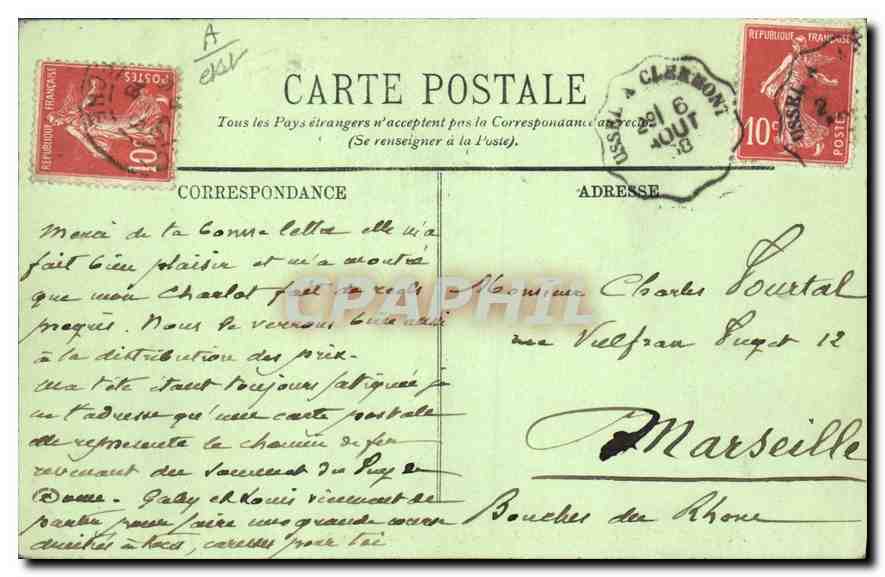 A
REPUBLIQUE FRANÇAISE
10c
POSTES
CARTE POSTALE
Tous les Pays étrangers n'acceptent pas la Correspondance au recto
(Se renseigner à la Poste).
USSEL A CLERMONT
2° 6
AOUT
08
REPUBLIQUE FRANÇAISE
10c
POSTES
USSEL A
CORRESPONDANCE
Merci de ta bonne lettre elle m'a
fait bien plaisir et m'a montré
que mon Charlot fait de reels
progrès. Nous le verrons bien aussi
à la distribution des prix.
Ma tête étant toujours fatiguée je
ne t'adresse qu'une carte postale
elle represente le chemin de fer
revenant du sommet du Puy de
Dome. Gaby et Louis viennent de
partir pour faire une grande course
amitiés à tous, caresses pour toi
ADRESSE
Monsieur Charles Pourtal
rue Vulfran Puget 12
Marseille
Bouches du Rhone
CPAPHIL